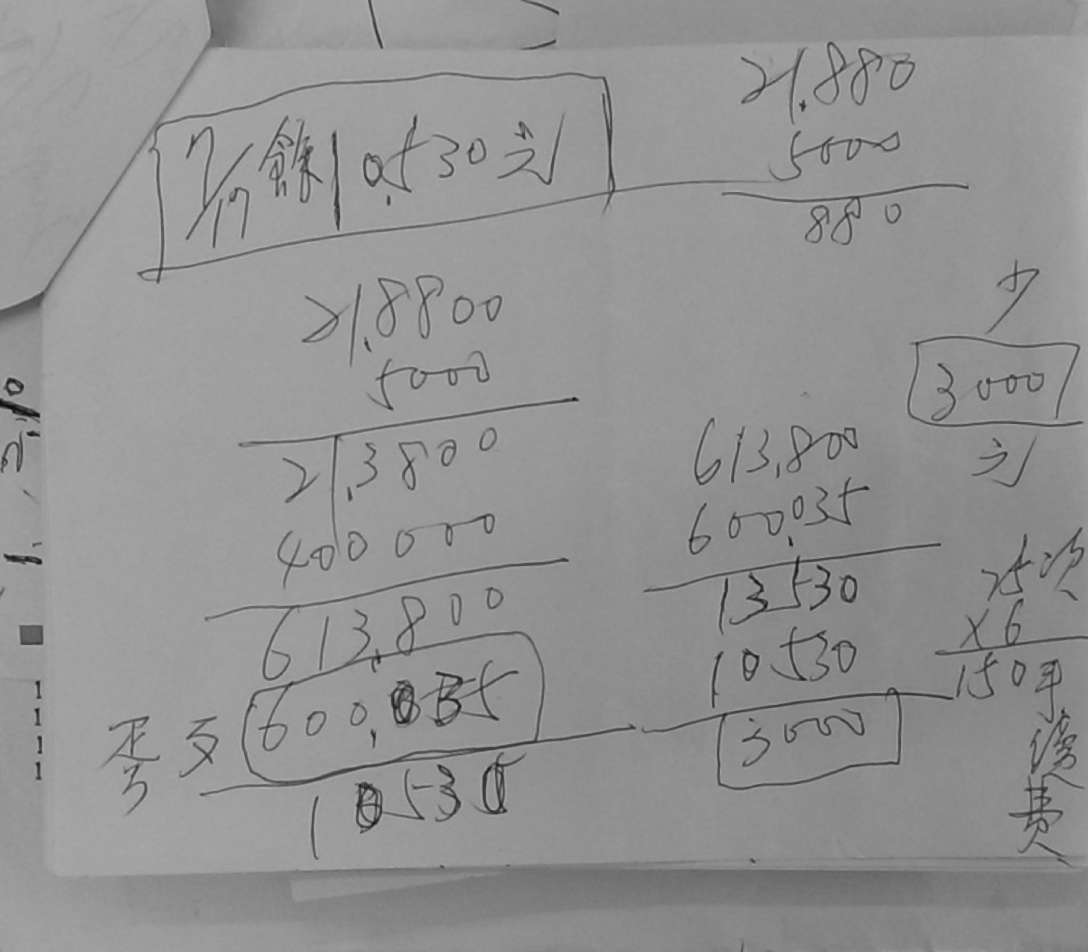 7/17餘10,530元
21,880
5000
880
21,8800
5000
21,3800
400000
613,800
支 600,035
10530
少
3000
元
613,800
600,035
13530
10530
3000
25次
x6
150手
續
費